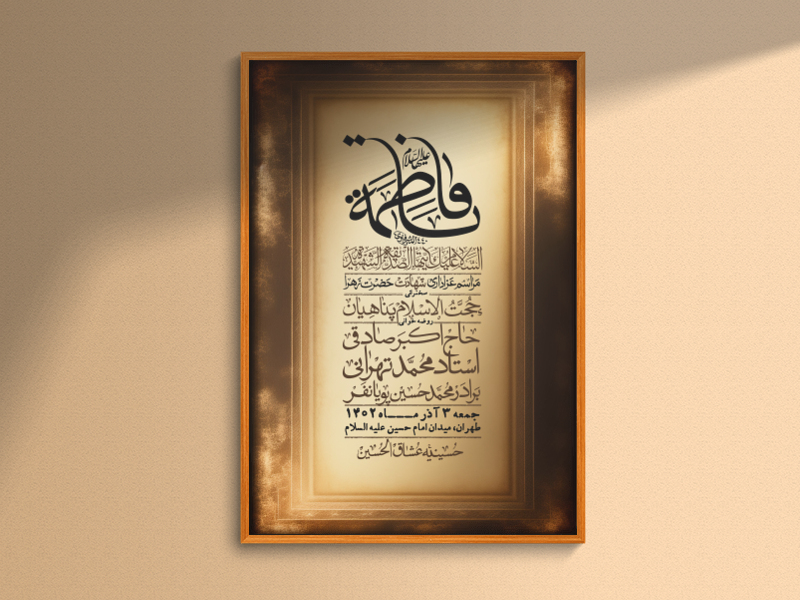 فاطمة
علیها السلام
السلام علیک ایتها الصدیقة الشهیده
مراسم عزاداری شهادت حضرت زهرا
سخنرانی
حجت الاسلام پناهیان
روضه خوانی
حاج اکبر صادقی
استاد محمد تهرانی
برادر محمد حسین پویانفر
جمعه ۳ آذر مـاه ۱۴۰۲
طهران، میدان امام حسین علیه السلام
حسینیه عشاق الحسین